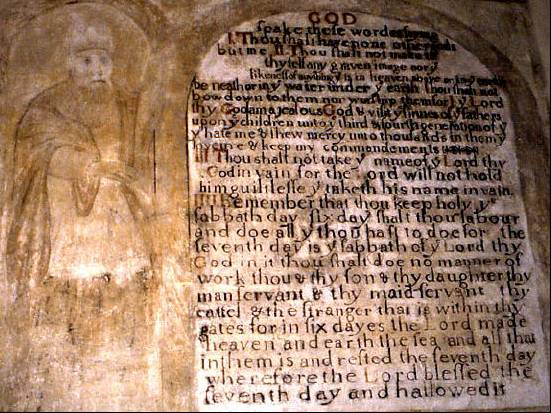 GOD
ſpake theſe wordes ſaying
I. Thou ſhalt have none other gods
but me II Thou ſhalt not make to
thyſelf any graven image nor y
likeneſs of anything y is in heaven above or in y
be neath or in y water under y earth thou ſhalt not
bow down to them nor worſhip them for I y Lord
thy God am a jealous God & viſit y ſinnes of y fathers
upon y children unto y third & fourth generation of y
y hate me & ſhew mercy unto thouſands in them y
love me & keep my commandements
III Thou ſhalt not take y name of y Lord thy
God in vain for the Lord will not hold
him guiltleſſe y taketh his name in vain.
IIII Remember that thou keep holy ye
ſabbath day ſix day ſhalt thou labour
and doe all y thou haſt to doe for the
ſeventh day is y ſabbath of y Lord thy
God in it thou ſhalt doe no manner of
work thou & thy ſon & thy daughter thy
man ſervant & thy maid ſervant thy
cattel & the ſtranger that is within thy
gates for in ſix dayes the Lord made
heaven and earth the ſea and all that
in them is and reſted the ſeventh day
wherefore the Lord bleſſed the
ſeventh day and hallowed it